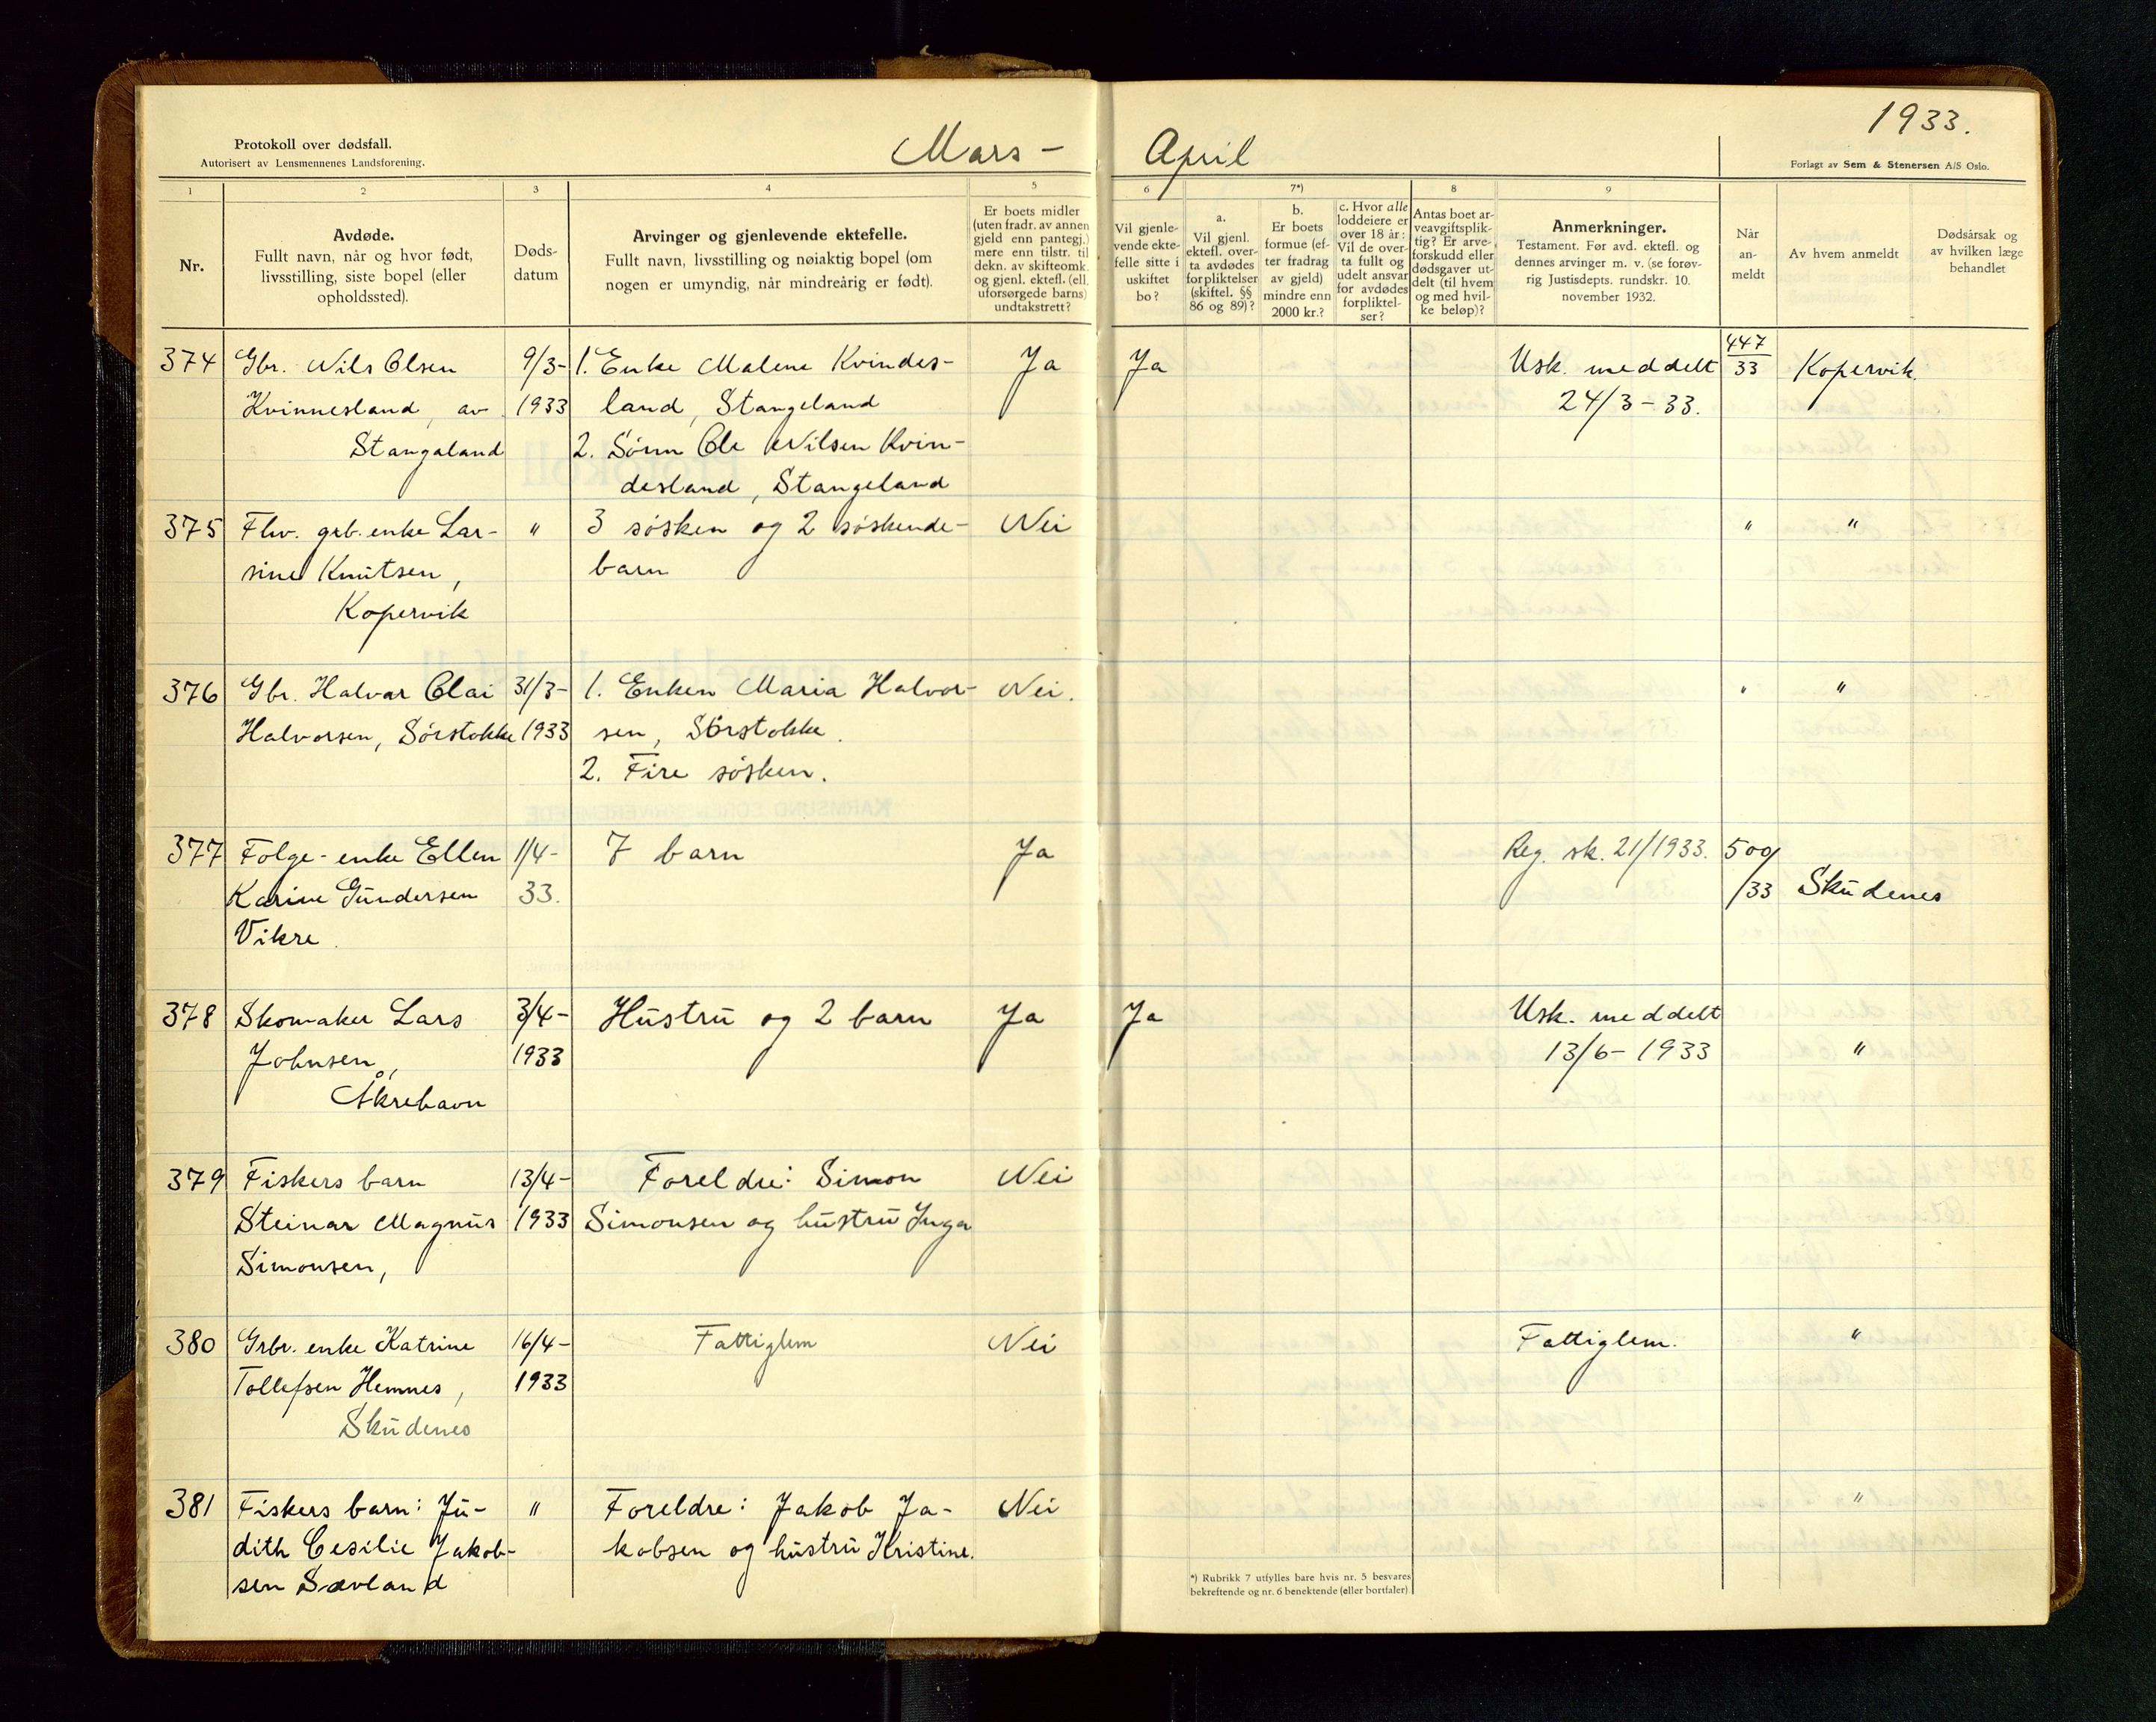 1933.
Mars – April
Protokoll over dødsfall.
Autorisert av Lensmennenes Landsforening.
Forlagt av Sem & Stenersen A/S Oslo.
1 2 3 4 5 6 7*) 8 9
Nr.
Avdøde.
Fullt navn, når og hvor født,
livsstilling, siste bopel (eller
opholdssted).
Døds-
datum
Arvinger og gjenlevende ektefelle.
Fullt navn, livsstilling og nøiaktig bopel (om
nogen er umyndig, når mindreårig er født).
Er boets midler
(uten fradr. av annen
gjeld enn pantegj.)
mere enn tilstr. til
dekn. av skifteomk.
og gjenl. ektefl. (ell.
uforsørgede barns)
undtakstrett?
Vil gjenle-
vende ekte-
felle sitte i
uskiftet
bo?
a.
Vil gjenl.
ektefl. over-
ta avdødes
forpliktelser
(skiftel. §§
86 og 89)?
b.
Er boets
formue (ef-
ter fradrag
av gjeld)
mindre enn
2000 kr.?
c. Hvor alle
loddeiere er
over 18 år:
Vil de over-
ta fullt og
udelt ansvar
for avdødes
forpliktel-
ser?
Antas boet ar-
veavgiftsplik-
tig? Er arve-
forskudd eller
dødsgaver ut-
delt (til hvem
og med hvil-
ke beløp)?
Anmerkninger.
Testament. Før avd. ektefl. og
dennes arvinger m. v. (se forøv-
rig Justisdepts. rundskr. 10.
november 1932.
Når
an-
meldt
Av hvem anmeldt
Dødsårsak og
av hvilken læge
behandlet
374 Gbr. Nils Olsen 9/3- 1. Enke Malene Kvindes- Ja Ja Usk. meddelt 447/33 Kopervik.
Kvinnesland, av 1933 land, Stangeland 24/3-33.
Stangaland 2. Sønn Ole Nilsen Kvin-
desland, Stangeland
375 Fhv. grb. enke Lar- " 3 søsken og 2 søskende- Nei " "
sine Knutsen, barn
Kopervik
376 Gbr. Halvar Olai 31/3- 1. Enken Maria Halvor- Nei. " "
Halvorsen, Sørstokke 1933 sen, Sørstokke.
2. Fire søsken.
377 Folge-enke Ellen 1/4- 7 barn Ja Reg. sk. 21/1933. 500/
Karine Gundersen 33. /33 Skudenes
Vikre.
378 Skomaker Lars 3/4- Hustru og 2 barn Ja Ja Usk. meddelt
Johnsen, 1933 13/6-1933 "
Åkrehavn
379 Fiskers barn 13/4- Foreldre: Simon Nei
Steinar Magnus 1933 Simonsen og hustru Inga
Simonsen,
380 Grbr. enke Katrine 16/4- Fattiglem Nei Fattiglem. "
Tollefsen Hemnes, 1933
Skudenes
381 Fiskers barn: Ju- " Foreldre: Jakob Ja- Nei "
dith Cesilie Jakob- kobsen og hustru Kristine.
sen Sævland
*) Rubrikk 7 utfylles bare hvis nr. 5 besvares
bekreftende og nr. 6 benektende (eller bortfaler)